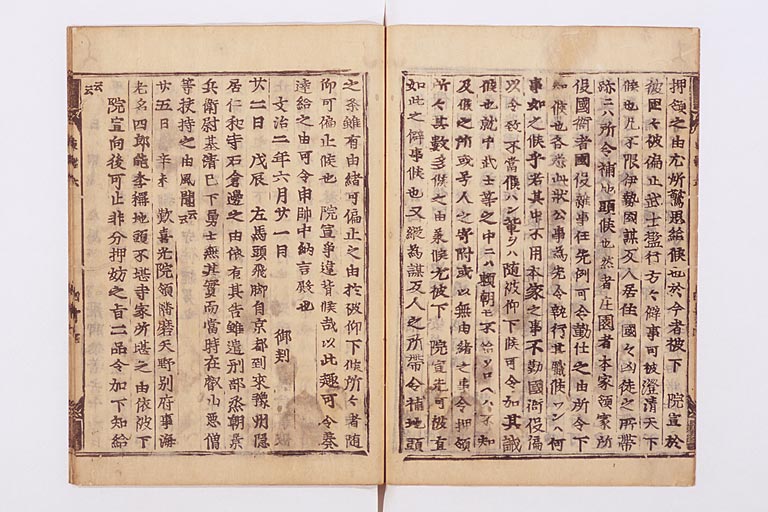 押領之由尤所驚思給候也於今者被下　院宣於
彼国々被偏止武士濫行方々僻事可被澄清天下
候也凡不限伊勢國謀叛人居住國々凶徒之所帯
跡ニハ所令補地頭候也然者庄園者本家領家所
役國衙者國役雑事任先例可令勤仕之由所令下
知候也各悉此状公事為先令執行其職候ハンハ何
事如之候乎若其中ニ不用本家之事不勤國衙役偏
以令致不當候ハン輩ヲハ随被仰下候可令加其誡
候也就中武士等之中ニハ頼朝モ不給候ヘハ不知
及候之所或号人之寄附或以無由緒之事令押領
所々其数多候之由承候尤被下　院宣先可被直
如此之僻事候也又縦為謀叛人之所帯令補地頭
之条雖有由緒可偏止之由於被仰下候所々者随
仰可偏止候也　院宣爭違背候哉以此趣可令奏
達給之由可令申帥中納言殿也
文治二年六月廿一日　　御判
廿二日　戊辰　左馬頭飛脚自京都到來豫州隠
居仁和寺石倉邊之由依有其告雖遣刑部丞朝景
兵衛尉基清已下勇士無其實而當時在叡山悪僧
等扶持之由風聞云云
廿五日　辛未　歓喜光院領播磨矢野別府事海
老名四郎能季稱地頭不堪寺家所堪之由依被下
院宣向後可止非分押妨之旨二品令加下知給
云云